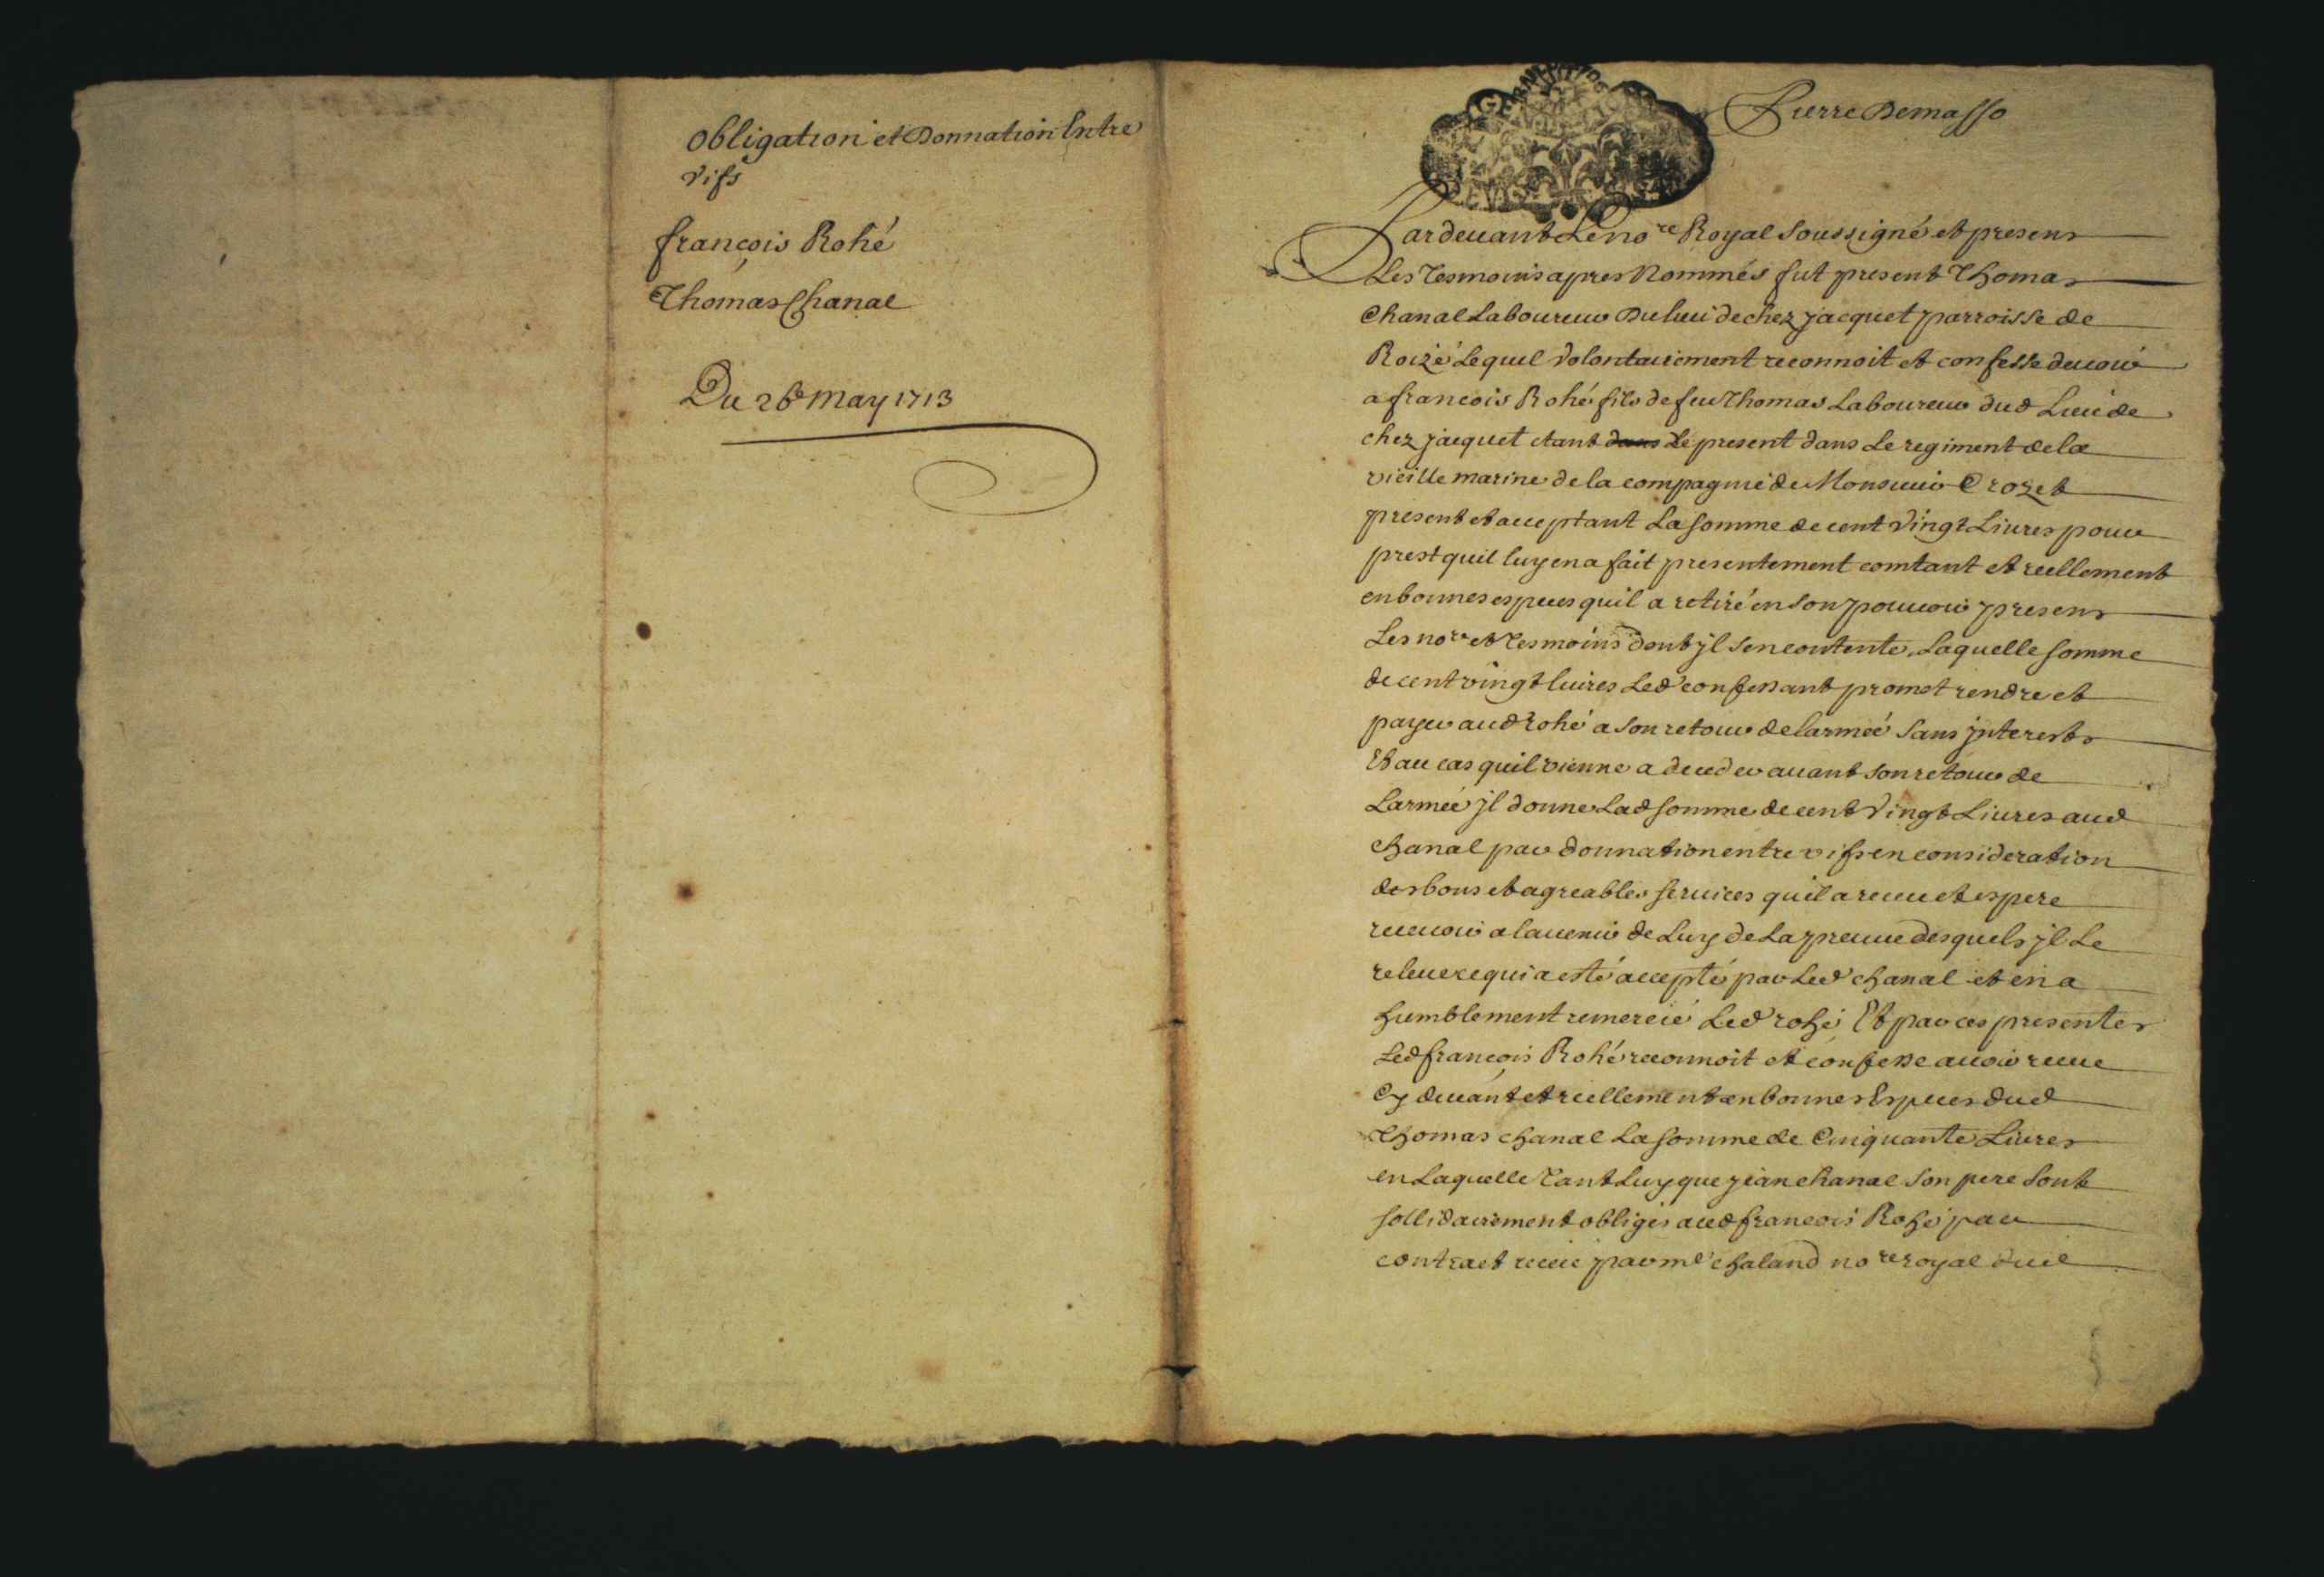 Obligation et Donnation Entre
vifs
françois Rohé
Thomas Chanal
Du 26e May 1713
Pierre Demasso
Pardeuant Le nore Royal Soussigné et presens
Les Tesmoins apres Nommés fut present Thomas
Chanal Laboureur du lieu de chez jacquet parroisse de
Roizé Lequel volontairement reconnoit et confesse deuoir
a francois Rohé fils de feu Thomas Laboureur dud Lieu de
chez jacquet etant dans Le present dans Le regiment de la
vieille marine de la compagnie de Monsieur Crozet
present et acceptant La somme de cent vingt Liures pour
prest quil luy en a fait presentement comtant et reellement
en bonnes especes quil a retiré en son pouuoir presens
Les nore et Tesmoins dont jl sen contente, Laquelle somme
de cent vingt liures Led confessant promet rendre et
payer aud Rohé a son retour de larmée sans jnterests
Et au cas quil vienne a deceder auant son retour de
Larmée jl donne Lad somme de cent vingt Liures aud
chanal par donnation entre vifs en consideration
des bons et agreables seruices quil a receu et espere
receuoir a lauenir de Luy de La preuue desquels jl Le
releue ce qui a esté accepté par Led chanal et en a
humblement remercié Led rohé Et par ces presentes
Led francois Rohé reconnoit et confesse auoir receu
Cy deuant et reellement en bonnes Especes dud
Thomas chanal La somme de Cinquante Liures
en Laquelle Tant Luy que jean chanal son pere sont
sollidairement obligés aud francois Rohé par
contract receu par me chaland nore royal duil